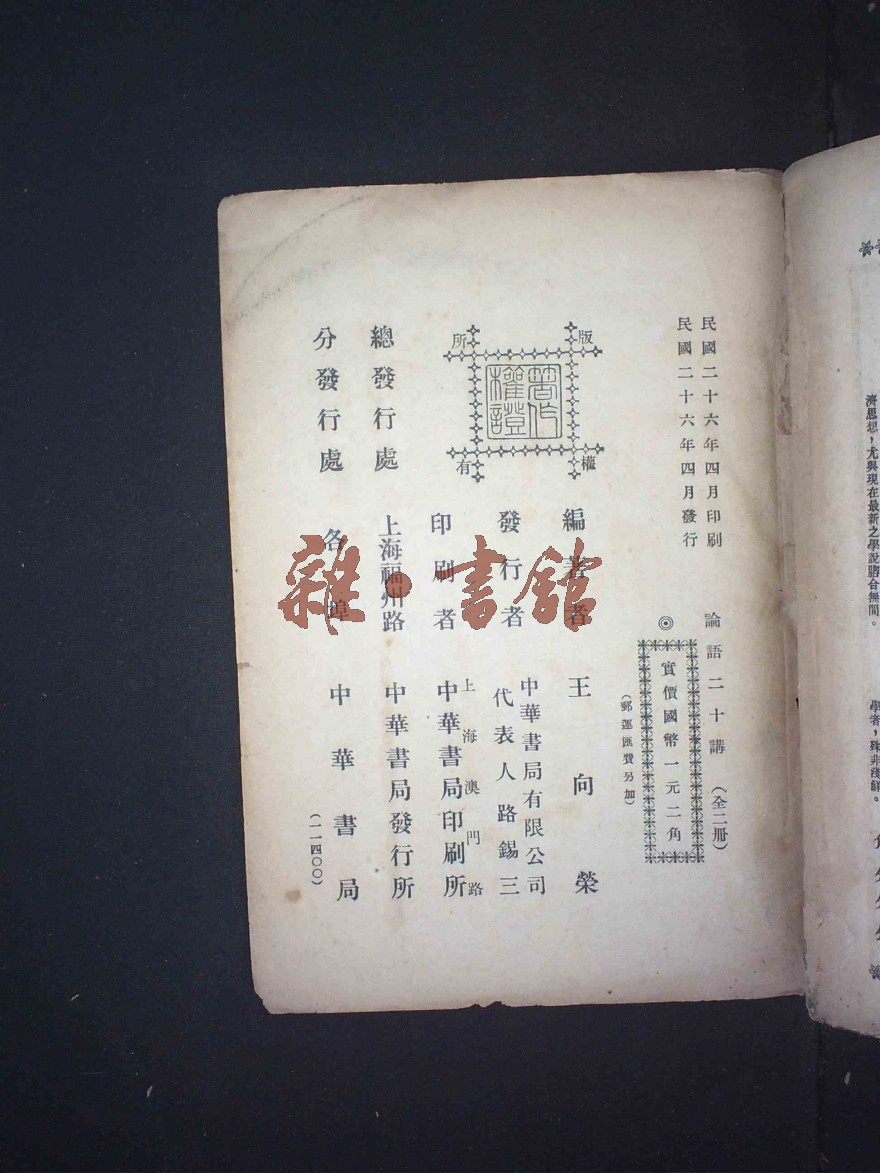 民國二十六年四月印刷
民國二十六年四月發行
論語二十講（全二冊）
◎實價國幣一元二角
（郵運匯費另加）
版權所有
著作權證
編著者 王向榮
發行者 中華書局有限公司
代表人路錫三
印刷者 上海澳門路
中華書局印刷所
總發行處 上海福州路 中華書局發行所
分發行處 各埠 中華書局
（一一四〇〇）
雜·書館
濟思想，尤與現在最新之學說脗合無間。
學者，殊非淺鮮。